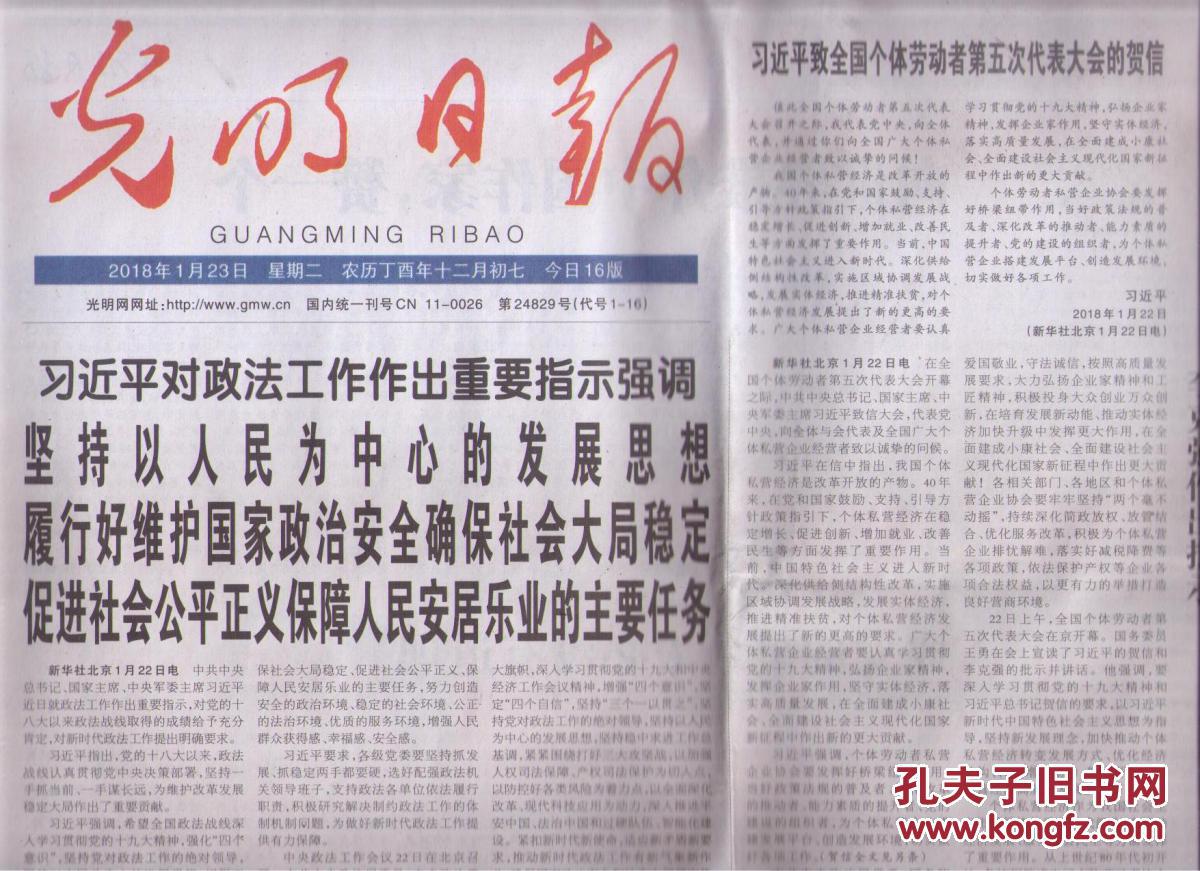 光明日报
GUANGMING RIBAO
2018年1月23日 星期二 农历丁酉年十二月初七 今日16版
光明网网址:http://www.gmw.cn 国内统一刊号CN 11-0026 第24829号(代号1-16)
习近平对政法工作作出重要指示强调
坚持以人民为中心的发展思想
履行好维护国家政治安全确保社会大局稳定
促进社会公平正义保障人民安居乐业的主要任务
新华社北京1月22日电 中共中央
总书记、国家主席、中央军委主席习近平
近日就政法工作作出重要指示,对党的十
八大以来政法战线取得的成绩给予充分
肯定,对新时代政法工作提出明确要求。
习近平指出,党的十八大以来,政法
战线认真贯彻党中央决策部署,坚持一
手抓当前、一手谋长远,为维护改革发展
稳定大局作出了重要贡献。
习近平强调,希望全国政法战线深
入学习贯彻党的十九大精神,强化“四个
意识”,坚持党对政法工作的绝对领导,
保社会大局稳定、促进社会公平正义、保
障人民安居乐业的主要任务,努力创造
安全的政治环境、稳定的社会环境、公正
的法治环境、优质的服务环境,增强人民
群众获得感、幸福感、安全感。
习近平要求,各级党委要坚持抓发
展、抓稳定两手都要硬,选好配强政法机
关领导班子,支持政法各单位依法履行
职责,积极研究解决制约政法工作的体
制机制问题,为做好新时代政法工作提
供有力保障。
中央政法工作会议22日在北京召
大旗帜,深入学习贯彻党的十九大和中央
经济工作会议精神,增强“四个意识”,坚
定“四个自信”,坚持“三个一以贯之”,坚
持党对政法工作的绝对领导,坚持以人民
为中心的发展思想,坚持稳中求进工作总
基调,紧紧围绕打好三大攻坚战,以加强
人权司法保障、产权司法保护为切入点,
以防控好各类风险为着力点,以深化司法
改革、现代科技应用为动力,深入推进平
安中国、法治中国和过硬队伍、智能化建
设。紧扣新时代新使命,适应新形势新
要求,推动新时代政法工作有新气象新作
习近平致全国个体劳动者第五次代表大会的贺信
值此全国个体劳动者第五次代表
大会召开之际,我代表党中央,向全体
代表,并通过你们向全国广大个体私
营企业经营者致以诚挚的问候!
我国个体私营经济是改革开放的
产物。40年来,在党和国家鼓励、支持、
引导方针政策指引下,个体私营经济在
稳定增长、促进创新、增加就业、改善民
生等方面发挥了重要作用。当前,中国
特色社会主义进入新时代。深化供给
侧结构性改革,实施区域协调发展战
略,发展实体经济,推进精准扶贫,对个
体私营经济发展提出了新的更高的要
求。广大个体私营企业经营者要认真
学习贯彻党的十九大精神,弘扬企业家
精神,发挥企业家作用,坚守实体经济,
落实高质量发展,在全面建成小康社
会、全面建设社会主义现代化国家新征
程中作出新的更大贡献。
个体劳动者私营企业协会要发挥
好桥梁纽带作用,当好政策法规的普
及者、深化改革的推动者、能力素质的
提升者、党的建设的组织者,为个体私
营企业搭建发展平台、创造发展环境,
切实做好各项工作。
习近平
2018年1月22日
(新华社北京1月22日电)
新华社北京1月22日电 在全
国个体劳动者第五次代表大会开幕
之际,中共中央总书记、国家主席、中
央军委主席习近平致信大会,代表党
中央,向全体与会代表及全国广大个
体私营企业经营者致以诚挚的问候。
习近平在信中指出,我国个体
私营经济是改革开放的产物。40年
来,在党和国家鼓励、支持、引导方
针政策指引下,个体私营经济在稳
定增长、促进创新、增加就业、改善
民生等方面发挥了重要作用。当
前,中国特色社会主义进入新时
代。深化供给侧结构性改革,实施
区域协调发展战略,发展实体经济,
推进精准扶贫,对个体私营经济发
展提出了新的更高的要求。广大个
体私营企业经营者要认真学习贯彻
党的十九大精神,弘扬企业家精神,
发挥企业家作用,坚守实体经济,落
实高质量发展,在全面建成小康社
会、全面建设社会主义现代化国家
新征程中作出新的更大贡献。
习近平强调,个体劳动者私营
企业协会要发挥好桥梁
好政策法规的普及者
的推动者、能力素质的提升
建设的组织者,为个体私
平台、创造发展环境
好各项工作。(贺信全文见另条)
爱国敬业,守法诚信,按照高质量发
展要求,大力弘扬企业家精神和工
匠精神,积极投身大众创业万众创
新,在培育发展新动能、推动实体经
济加快升级中发挥更大作用,在全
面建成小康社会、全面建设社会主
义现代化国家新征程中作出更大贡
献!各相关部门、各地区和个体私
营企业协会要牢牢坚持“两个毫不
动摇”,持续深化简政放权、放管结
合、优化服务改革,积极为个体私营
企业排忧解难,落实好减税降费等
各项政策,依法保护产权等企业各
项合法权益,以更有力的举措打造
良好营商环境。
22日上午,全国个体劳动者第
五次代表大会在京开幕。国务委员
王勇在会上宣读了习近平的贺信和
李克强的批示并讲话。他强调,要
深入学习贯彻党的十九大精神和
习近平总书记贺信的要求,以习近平
新时代中国特色社会主义思想为指
导,坚持新发展理念,加快推动个体
私营经济转变发展方式、优化经济
了重要作用。从上世纪80年代初开
孔夫子旧书网
www.kongfz.com